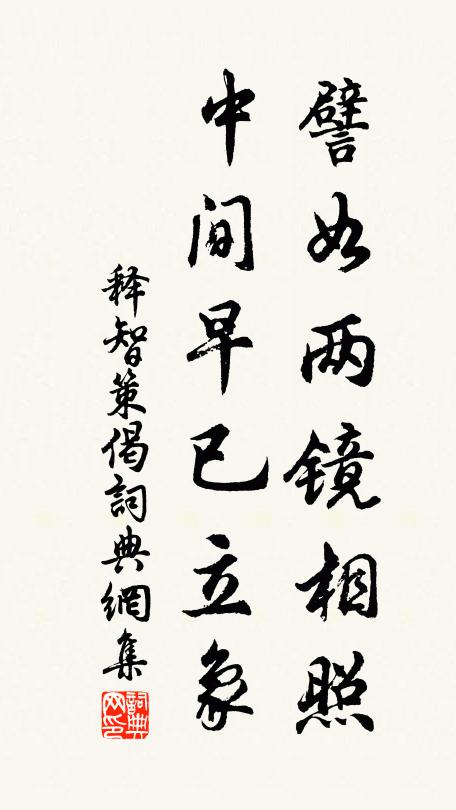 譬如两镜相照
中间早已立象
释智策偈詞典網集
詞典网印